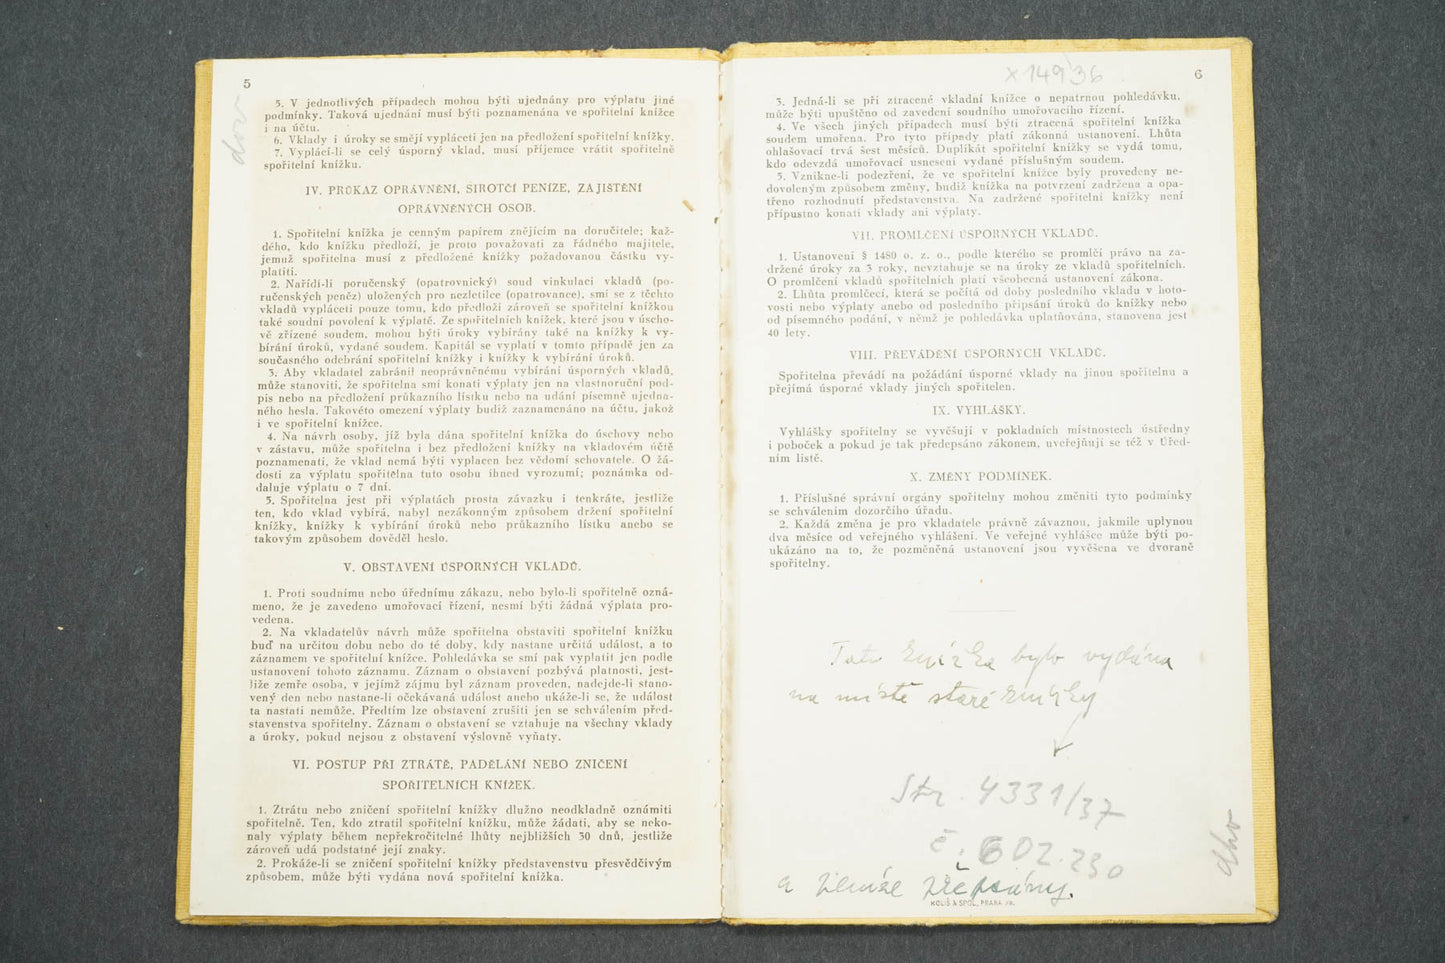 5
5. V jednotlivých případech mohou býti ujednány pro výplatu jiné
podmínky. Taková ujednání musí býti poznamenána ve spořitelní knížce
i na účtu.
6. Vklady i úroky se smějí vypláceti jen na předložení spořitelní knížky.
7. Vyplácí-li se celý úsporný vklad, musí příjemce vrátit spořitelně
spořitelní knížku.
IV. PRŮKAZ OPRÁVNĚNÍ, SIROTČÍ PENÍZE, ZAJIŠTĚNÍ
OPRÁVNĚNÝCH OSOB.
1. Spořitelní knížka je cenným papírem znějícím na doručitele; kaž-
dého, kdo knížku předloží, je proto považovati za řádného majitele,
jemuž spořitelna musí z předložené knížky požadovanou částku vy-
platiti.
2. Nařídí-li poručenský (opatrovnický) soud vinkulaci vkladů (po-
ručenských peněz) uložených pro nezletilce (opatrovance), smí se z těchto
vkladů vypláceti pouze tomu, kdo předloží zároveň se spořitelní knížkou
také soudní povolení k výplatě. Ze spořitelních knížek, které jsou v úscho-
vě zřízené soudem, mohou býti úroky vybírány také na knížky k vy-
bírání úroků, vydané soudem. Kapitál se vyplatí v tomto případě jen za
současného odebrání spořitelní knížky i knížky k vybírání úroků.
3. Aby vkladatel zabránil neoprávněnému vybírání úsporných vkladů,
může stanoviti, že spořitelna smí konati výplaty jen na vlastnoruční pod-
pis nebo na předložení průkazního lístku nebo na udání písemně ujedna-
ného hesla. Takovéto omezení výplaty budiž zaznamenáno na účtu, jakož
i ve spořitelní knížce.
4. Na návrh osoby, jíž byla dána spořitelní knížka do úschovy nebo
v zástavu, může spořitelna i bez předložení knížky na vkladovém účtě
poznamenati, že vklad nemá býti vyplacen bez vědomí schovatele. O žá-
dosti za výplatu spořitelna tuto osobu ihned vyrozumí; poznámka od-
daluje výplatu o 7 dní.
5. Spořitelna jest při výplatách prosta závazku i tenkráte, jestliže
ten, kdo vklad vybírá, nabyl nezákonným způsobem držení spořitelní
knížky, knížky k vybírání úroků nebo průkazního lístku anebo se
takovým způsobem dověděl heslo.
V. OBSTAVENÍ ÚSPORNÝCH VKLADŮ.
1. Proti soudnímu nebo úřednímu zákazu, nebo bylo-li spořitelně ozná-
meno, že je zavedeno umořovací řízení, nesmí býti žádná výplata pro-
vedena.
2. Na vkladatelův návrh může spořitelna obstaviti spořitelní knížku
buď na určitou dobu nebo do té doby, kdy nastane určitá událost, a to
záznamem ve spořitelní knížce. Pohledávka se smí pak vyplatit jen podle
ustanovení tohoto záznamu. Záznam o obstavení pozbývá platnosti, jest-
liže zemře osoba, v jejímž zájmu byl záznam proveden, nadejde-li stano-
vený den nebo nastane-li očekávaná událost anebo ukáže-li se, že událost
ta nastati nemůže. Předtím lze obstavení zrušiti jen se schválením před-
stavenstva spořitelny. Záznam o obstavení se vztahuje na všechny vklady
a úroky, pokud nejsou z obstavení výslovně vyňaty.
VI. POSTUP PŘI ZTRÁTĚ, PADĚLÁNÍ NEBO ZNIČENÍ
SPOŘITELNÍCH KNÍŽEK.
1. Ztrátu nebo zničení spořitelní knížky dlužno neodkladně oznámiti
spořitelně. Ten, kdo ztratil spořitelní knížku, může žádati, aby se neko-
naly výplaty během nepřekročitelné lhůty nejbližších 30 dnů, jestliže
zároveň udá podstatné její znaky.
2. Prokáže-li se zničení spořitelní knížky představenstvu přesvědčivým
způsobem, může býti vydána nová spořitelní knížka.
x 149 36
6
3. Jedná-li se při ztracené vkladní knížce o nepatrnou pohledávku,
může býti upuštěno od zavedení soudního umořovacího řízení.
4. Ve všech jiných případech musí býti ztracená spořitelní knížka
soudem umořena. Pro tyto případy platí zákonná ustanovení. Lhůta
ohlašovací trvá šest měsíců. Duplikát spořitelní knížky se vydá tomu,
kdo odevzdá umořovací usnesení vydané příslušným soudem.
5. Vznikne-li podezření, že ve spořitelní knížce byly provedeny ne-
dovoleným způsobem změny, budiž knížka na potvrzení zadržena a opa-
třeno rozhodnutí představenstva. Na zadržené spořitelní knížky není
přípustno konati vklady ani výplaty.
VII. PROMLČENÍ ÚSPORNÝCH VKLADŮ.
1. Ustanovení § 1480 o. z. o., podle kterého se promlčí právo na za-
držené úroky za 3 roky, nevztahuje se na úroky ze vkladů spořitelních.
O promlčení vkladů spořitelních platí všeobecná ustanovení zákona.
2. Lhůta promlčecí, která se počítá od doby posledního vkladu v hoto-
vosti nebo výplaty anebo od posledního připsání úroků do knížky nebo
od písemného podání, v němž je pohledávka uplatňována, stanovena jest
40 lety.
VIII. PŘEVÁDĚNÍ ÚSPORNÝCH VKLADŮ.
Spořitelna převádí na požádání úsporné vklady na jinou spořitelnu a
přejímá úsporné vklady jiných spořitelen.
IX. VYHLÁŠKY.
Vyhlášky spořitelny se vyvěšují v pokladních místnostech ústředny
i poboček a pokud je tak předepsáno zákonem, uveřejňují se též v Úřed-
ním listě.
X. ZMĚNY PODMÍNEK.
1. Příslušné správní orgány spořitelny mohou změniti tyto podmínky
se schválením dozorčího úřadu.
2. Každá změna je pro vkladatele právně závaznou, jakmile uplynou
dva měsíce od veřejného vyhlášení. Ve veřejné vyhlášce může býti po-
ukázáno na to, že pozměněná ustanovení jsou vyvěšena ve dvoraně
spořitelny.
Tato knížka byla vydána
na místě staré knížky
Str. 4331/37
č. 602.230
a
KOLIŠ & SPOL., PRAHA